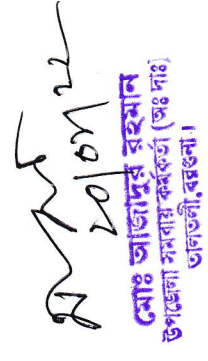 মোঃ আজাদুর রহমান
উপজেলা সমবায় কর্মকর্তা (অঃ দাঃ)
তালতলী, বরগুনা।